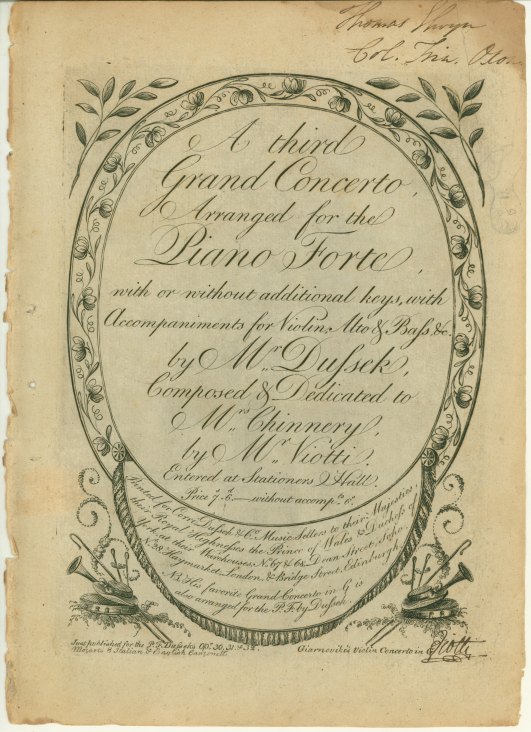 Thomas
Col. Trin. Oxon.
A third
Grand Concerto,
Arranged for the
Piano Forte,
with or without additional keys, with
Accompaniments for Violin, Alto & Bass &c.
by Mr. Dussek,
Composed & Dedicated to
Mrs. Chinnery,
by Mr. Viotti.
Entered at Stationers Hall.
Price 7.6.— without accompts. 6s.
Printed for Corri, Dussek & Co. Music Sellers to their Majesties,
their Royal Highnesses the Prince of Wales & Dutchess of
York, at their Warehouses No. 67 & 68, Dean Street, Soho
No. 28, Haymarket London, & Bridge Street Edinburgh
NB. His favorite Grand Concerto in G is
also arranged for the P.F. by Dussek
Just published for the P.F. Dusseks Op: 30, 31, & 32
Mozarts 6 Italian & English Canzonetts
Giarnoviki's Violin Concerto in G
Viotti